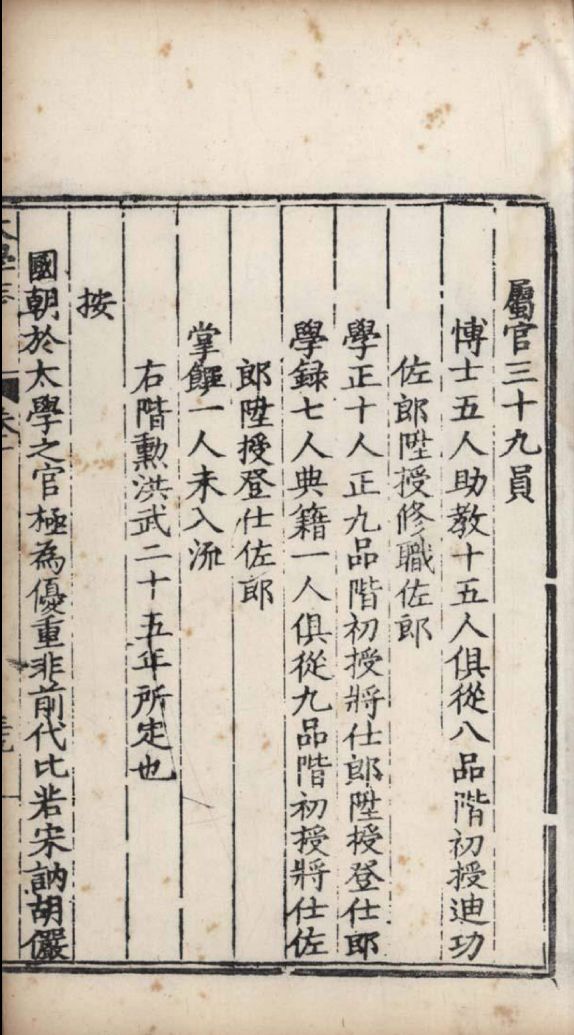 屬官三十九員
博士五人助教十五人俱從八品階初授迪功
佐郎陞授修職佐郎
學正十人正九品階初授將仕郎陞授登仕郎
學録七人典籍一人俱從九品階初授將仕佐
郎陞授登仕佐郎
掌饌一人未入流
右階勲洪武二十五年所定也
按
國朝於太學之官極為優重非前代比若宋訥胡儼